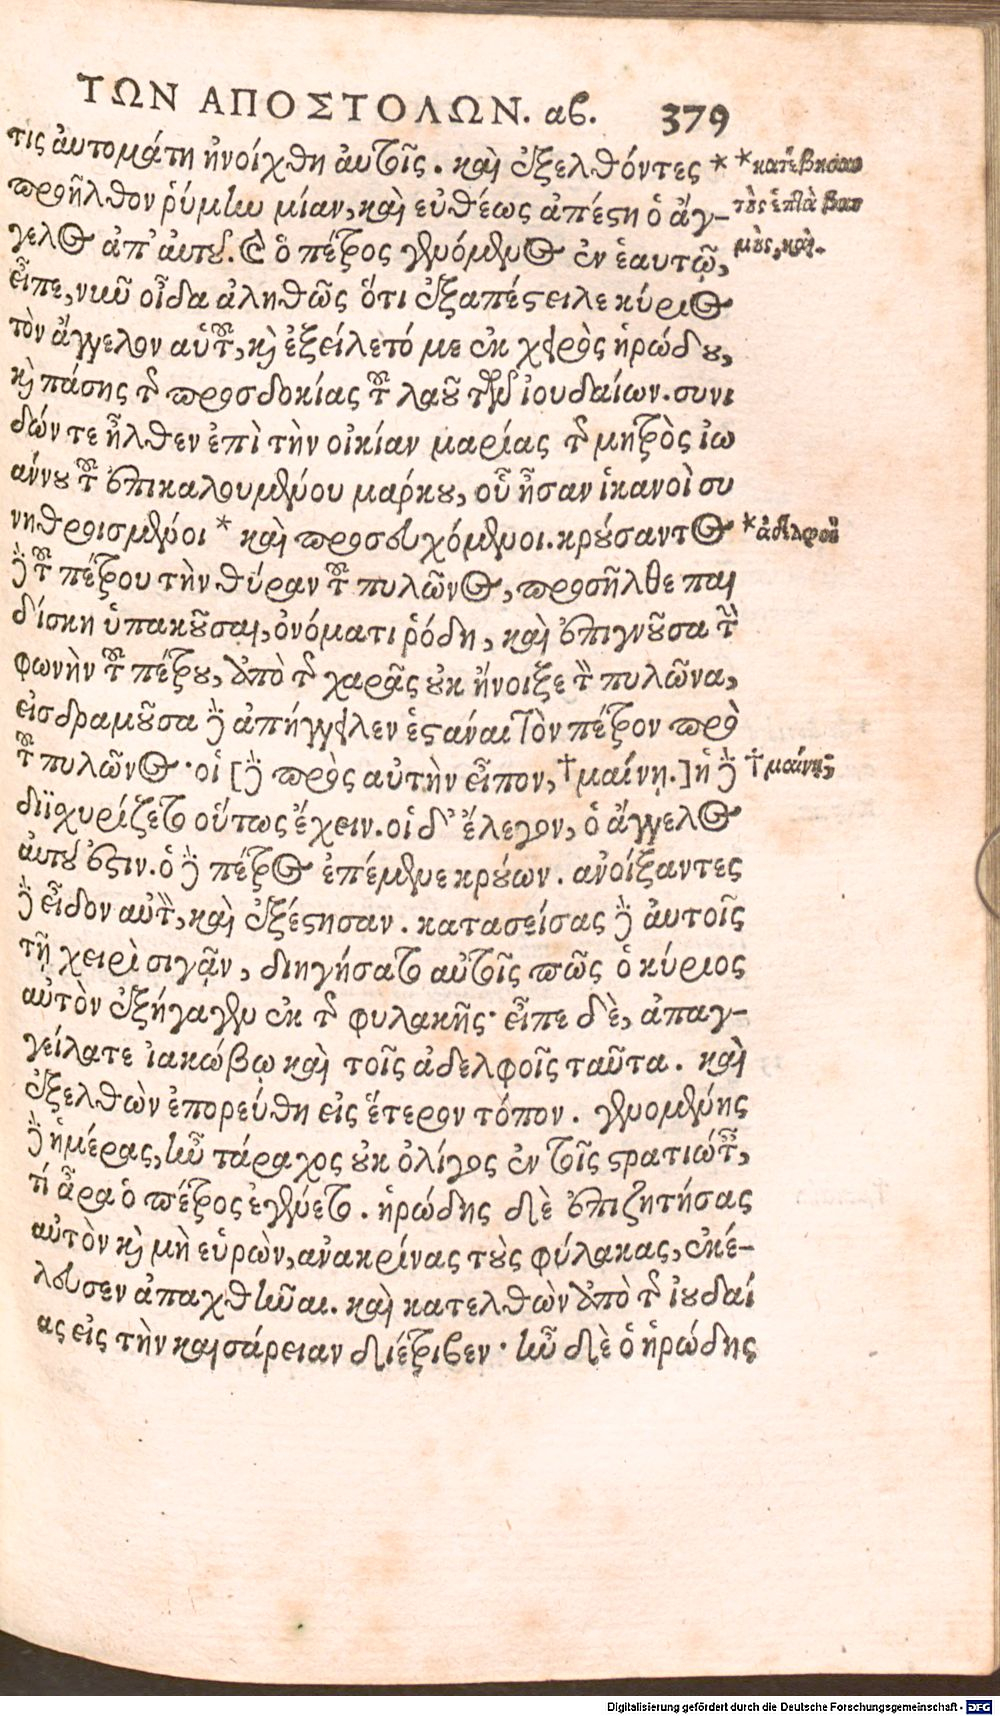 ΤΩΝ ΑΠΟΣΤΟΛΩΝ. αβ. 379
τις ἀυτομάτη ἠνοίχθη ἀυτοῖς. καὶ ἐξελθόντες * *κατέβησαν
προῆλθον ῥύμην μίαν, καὶ εὐθέως ἀπέστη ὁ ἄγ- τοὺς ἑπτὰ βαθ
γελος ἀπ' ἀυτοῦ. Καὶ ὁ πέτρος γενόμενος ἐν ἑαυτῷ, μοὺς, καὶ.
εἶπε, νῦν οἶδα ἀληθῶς ὅτι ἐξαπέστειλε κύριος
τὸν ἄγγελον αὑτοῦ, καὶ ἐξείλετό με ἐκ χειρὸς ἡρώδου,
καὶ πάσης τῆς προσδοκίας τοῦ λαοῦ τῶν ἰουδαίων. συνι
δών τε ἦλθεν ἐπὶ τὴν οἰκίαν μαρίας τῆς μητρὸς ἰω
αννου τοῦ ἐπικαλουμένου μαρκου, οὗ ἦσαν ἱκανοὶ συ
νηθροισμένοι * καὶ προσευχόμενοι. κρούσαντος *ἀδελφοὶ
δὲ τοῦ πέτρου τὴν θύραν τοῦ πυλῶνος, προσῆλθε παι
δίσκη ὑπακοῦσαι, ὀνόματι ῥόδη, καὶ ἐπιγνοῦσα τὴν
φωνὴν τοῦ πέτρου, ἀπὸ τῆς χαρᾶς οὐκ ἤνοιξε τὸν πυλῶνα,
εἰσδραμοῦσα δὲ ἀπήγγειλεν ἑστάναι τὸν πέτρον πρὸ
τοῦ πυλῶνος· οἱ [δὲ πρὸς αὐτὴν εἶπον, †μαίνῃ.] ἡ δὲ †μαίνῃ;
διϊσχυρίζετο οὕτως ἔχειν. οἱ δ' ἔλεγον, ὁ ἄγγελος
ἀυτοῦ ἐστιν. ὁ δὲ πέτρος ἐπέμενε κρούων. ανοίξαντες
δὲ εἶδον αὐτὸν, καὶ ἐξέστησαν. κατασείσας δὲ ἀυτοῖς
τῇ χειρὶ σιγᾷν, διηγήσατο αὐτοῖς πῶς ὁ κύριος
αὐτὸν ἐξήγαγεν ἐκ τῆς φυλακῆς· εἶπε δὲ, ἀπαγ-
γείλατε ἰακώβῳ καὶ τοῖς ἀδελφοῖς ταῦτα. καὶ
ἐξελθὼν ἐπορεύθη εἰς ἕτερον τόπον. γενομένης
δὲ ἡμέρας, ἦν τάραχος οὐκ ὀλίγος ἐν τοῖς στρατιώταις,
τί ἆρα ὁ πέτρος ἐγένετο. ἡρώδης δὲ ἐπιζητήσας
αὐτὸν καὶ μὴ εὑρὼν, ανακρίνας τοὺς φύλακας, ἐκέ-
λευσεν ἀπαχθῆναι. καὶ κατελθὼν ἀπὸ τῆς ἰουδαί
ας εἰς τὴν καισάρειαν διέτριβεν· ἦν δὲ ὁ ἡρώδης
Digitalisierung gefördert durch die Deutsche Forschungsgemeinschaft - DFG